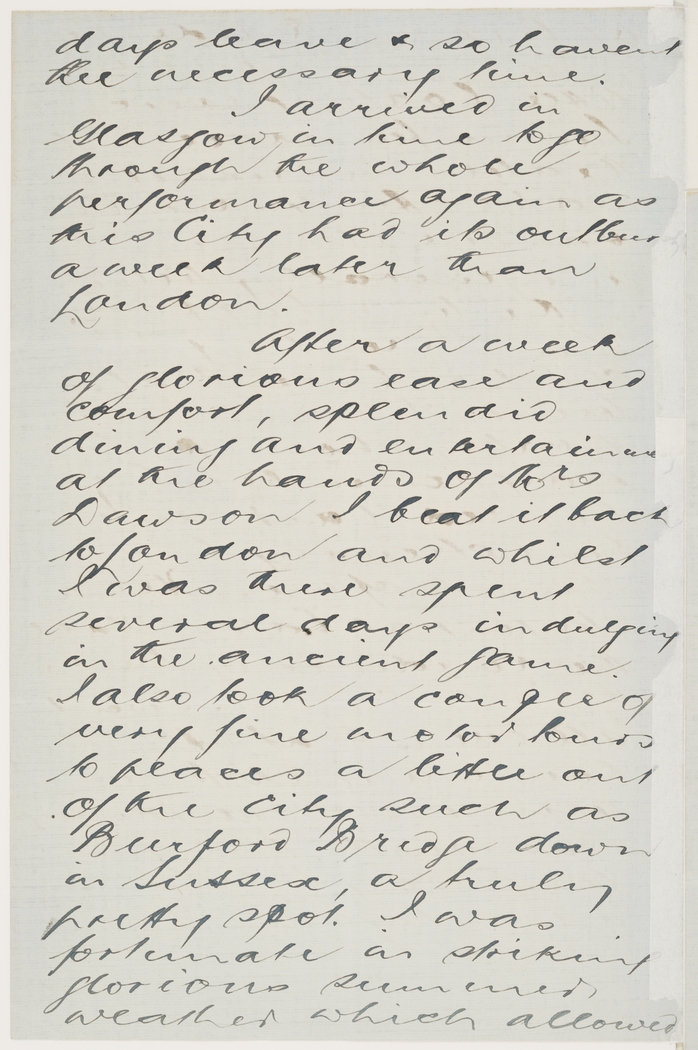 days leave & so havent
the necessary time.
I arrived in
Glasgow in time to go
through the whole
performance again as
this City had its outburst
a week later than
London.
After a week
of glorious ease and
comfort, splendid
dining and entertainment
at the hands of Mrs
Dawson I beat it back
to London and whilst
I was there spent
several days indulging
in the ancient game.
I also took a couple of
very fine motor tours
to places a little out
of the City such as
Burford Bridge down
in Sussex, a truly
pretty spot. I was
fortunate in striking
glorious summer
weather which allowed